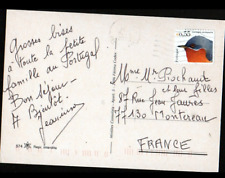 Grosses bises
à toute la petite
famille du Portugal
Bon séjour
A Bientôt.
Jeannine
0,55
Mme Mr Pochayet
et les filles
87 Rue Jean-Jaurès
77130 Montereau
FRANCE